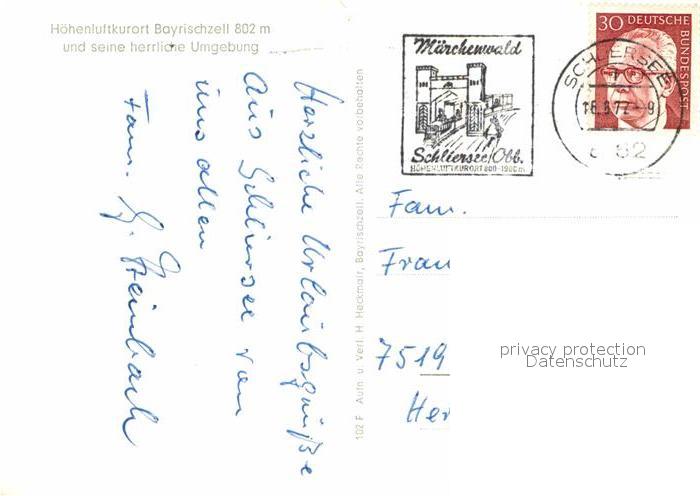 Höhenluftkurort Bayrischzell 802 m
und seine herrliche Umgebung
Herzliche Urlaubsgrüße
aus Schliersee von
uns allen
Fam. G. Steinbach
102 F Aufn u. Verl. H Heckmair, Bayrischzell. Alle Rechte vorbehalten
Märchenwald
Schliersee/Obb.
HÖHENLUFTKURORT 800-1900m
SCHLIERSEE
30 DEUTSCHE
BUNDESPOST
Fam.
Frau
7519
privacy protection
Datenschutz